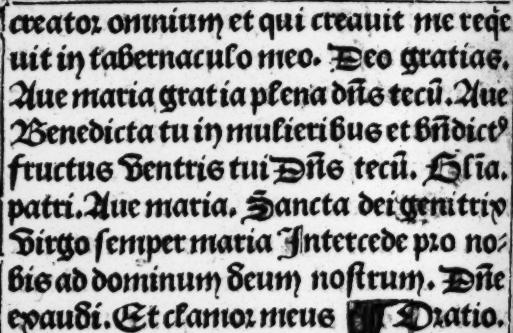 creator omnium et qui creauit me reqͥe
uit in tabernaculo meo. Deo gratias.
Aue maria gratia plena dn̄s tecū. Aue
Benedicta tu in mulieribus et bn̄dictꝰ
fructus Ventris tui Dn̄s tecū. Glīa.
patri. Aue maria. Sancta dei genitrix
Virgo semper maria Intercede pro no⸗
bis ad dominum deum nostrum. Dn̄e
exaudi. Et clamor meus ¶ Oratio.